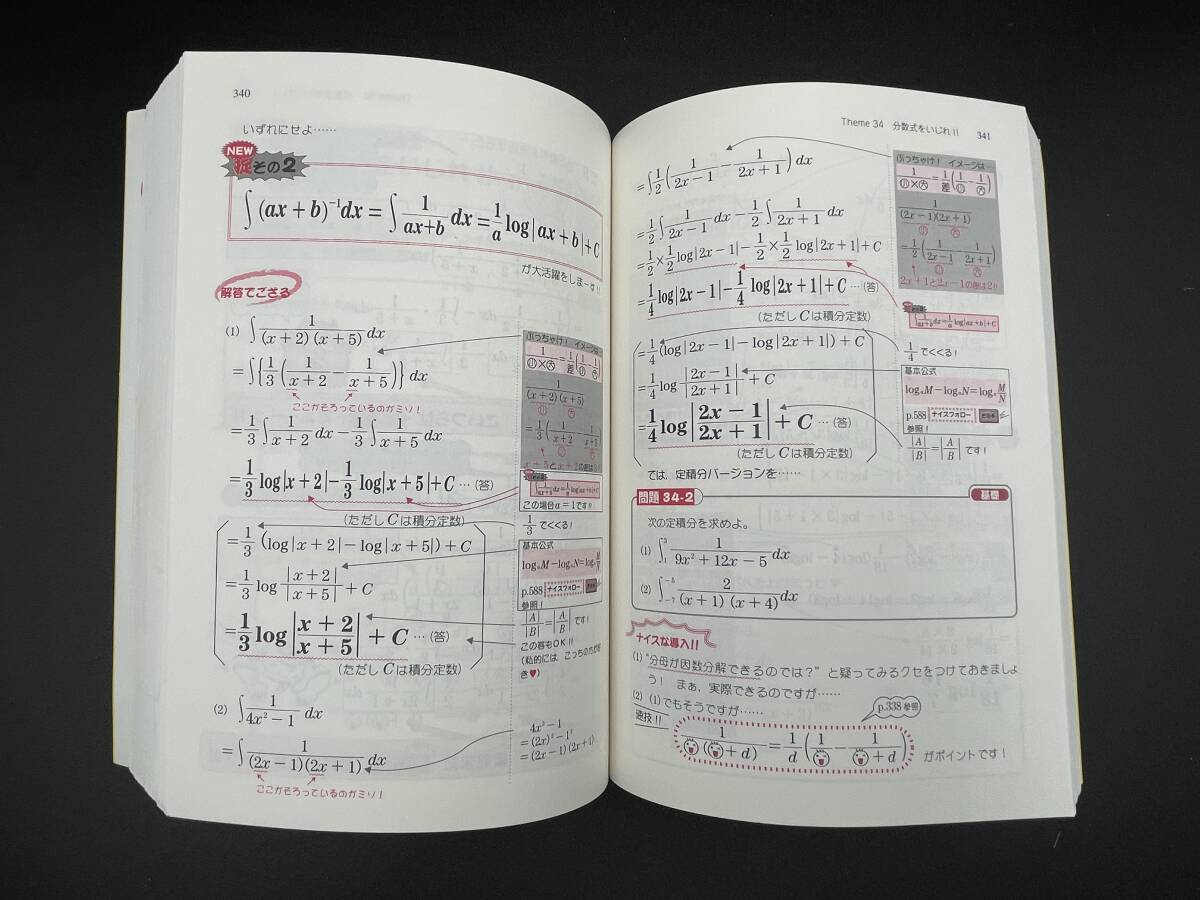 340
いずれにせよ……
NEW
掟その2
∫(ax+b)⁻¹dx=∫1/(ax+b) dx=1/a log|ax+b|+C
が大活躍をしまーす!!
解答でござる
(1) ∫1/((x+2)(x+5)) dx
=∫{1/3(1/(x+2)−1/(x+5))}dx
ここがそろっているのがミソ!
=1/3∫1/(x+2) dx−1/3∫1/(x+5) dx
=1/3 log|x+2|−1/3 log|x+5|+C …(答)
(ただしCは積分定数)
=1/3(log|x+2|−log|x+5|)+C
=1/3 log |x+2|/|x+5| +C
=1/3 log|(x+2)/(x+5)|+C …(答)
(ただしCは積分定数)
ぶっちゃけ!イメージは
1/(小×大)=1/差(1/小−1/大)
1/((x+2)(x+5))
小 大
=1/3(1/(x+2) 1/(x+5))
小 大
x+5とx+2の差は3!!
この場合a=1です!!
1/3でくくる!
基本公式
logₐM−logₐN=logₐM/N
p.588 ナイスフォロー
参照!
|A|/|B|=|A/B|です!
この答もOK!!
(私的には こっちの方が好き♥)
(2) ∫1/(4x²−1) dx
=∫1/((2x−1)(2x+1)) dx
ここがそろっているのがミソ!
4x²−1
=(2x)²−1²
=(2x−1)(2x+1)
Theme 34 分数式をいじれ!! 341
=∫1/2(1/(2x−1)−1/(2x+1))dx
=1/2∫1/(2x−1) dx−1/2∫1/(2x+1) dx
=1/2×1/2 log|2x−1|−1/2×1/2 log|2x+1|+C
=1/4 log|2x−1|−1/4 log|2x+1|+C …(答)
(ただしCは積分定数)
=1/4(log|2x−1|−log|2x+1|)+C
=1/4 log |2x−1|/|2x+1| +C
=1/4 log|(2x−1)/(2x+1)|+C …(答)
(ただしCは積分定数)
ぶっちゃけ!イメージは
1/(小×大)=1/差(1/小−1/大)
1/((2x−1)(2x+1))
小 大
=1/2(1/(2x−1) 1/(2x+1))
小 大
2x+1と2x−1の差は2!!
∫1/(ax+b) dx=1/a log|ax+b|+C
1/4でくくる!
基本公式
logₐM−logₐN=logₐM/N
p.588 ナイスフォロー
参照!
|A|/|B|=|A/B|です!
では,定積分バージョンを……
問題 34-2
基礎
次の定積分を求めよ。
(1) ∫₁³ 1/(9x²+12x−5) dx
(2) ∫₋₇⁻⁵ 2/((x+1)(x+4)) dx
ナイスな導入!!
(1)“分母が因数分解できるのでは?”と疑ってみるクセをつけておきましょ
う! まぁ,実際できるのですが……
(2) (1)でもそうですが……
p.338参照
速技!!
1/(( +d))=1/d(1/ −1/( +d)) がポイントです!